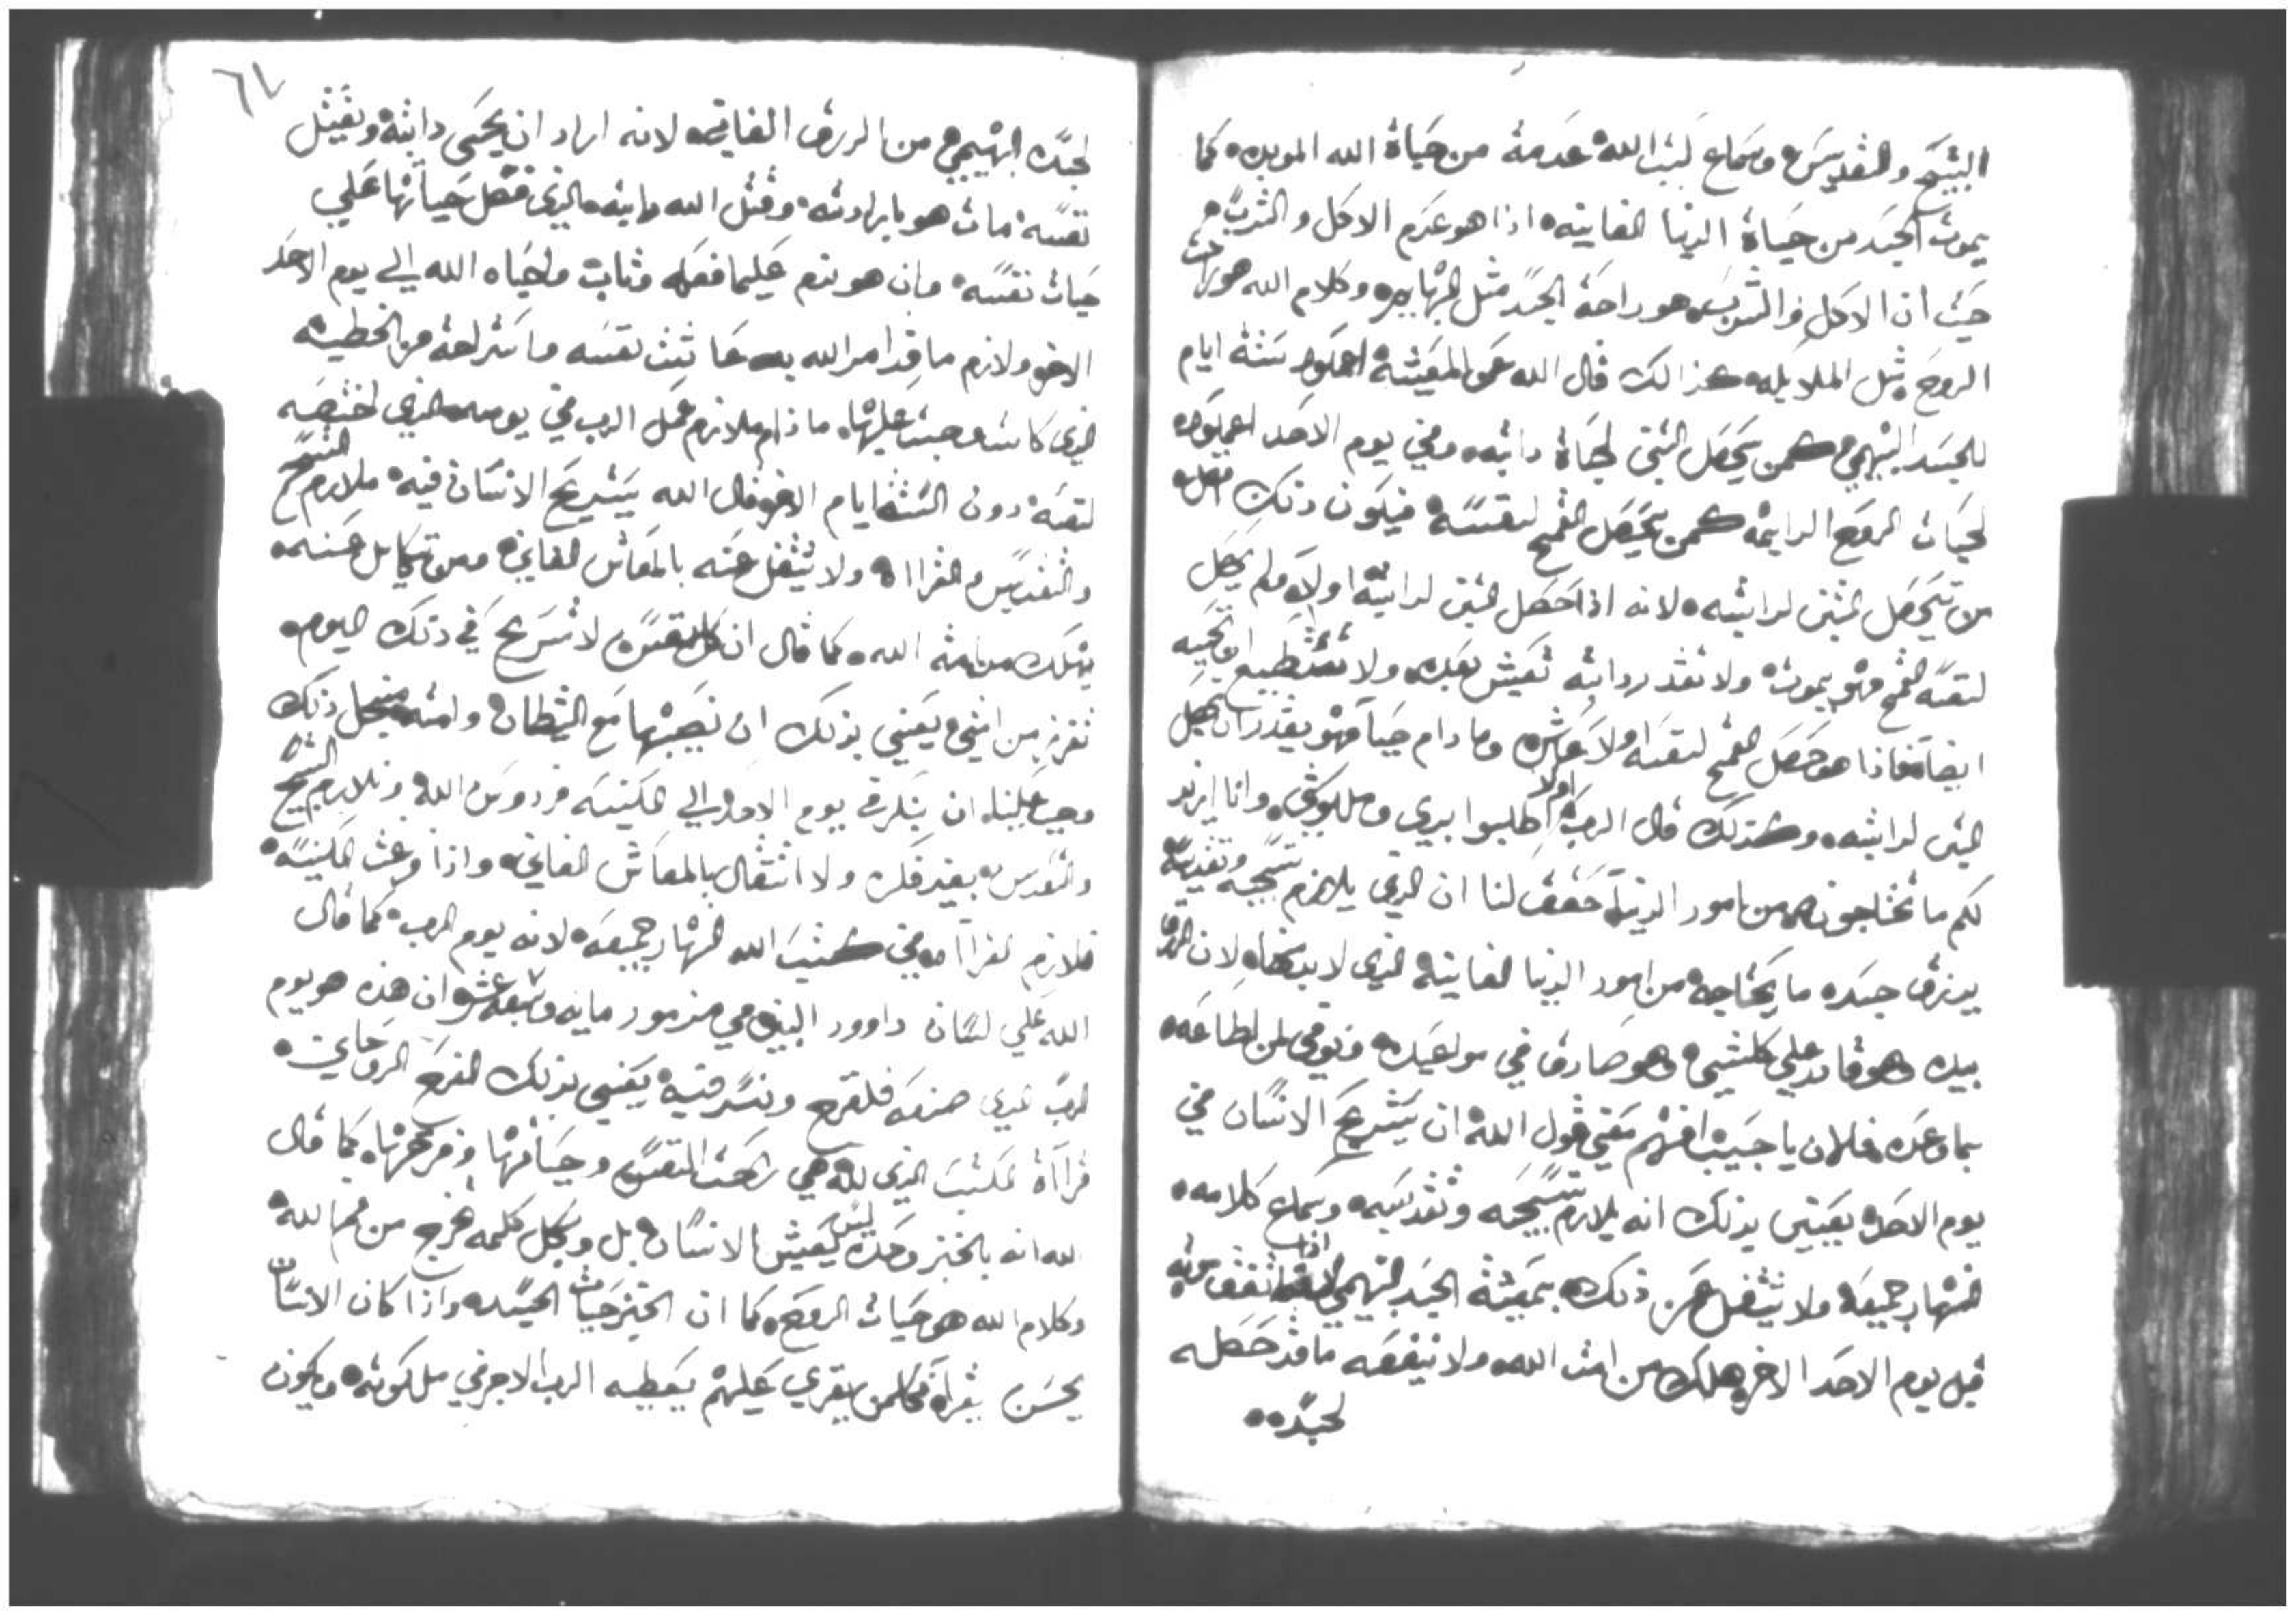 التسبيح والتقديس وسماع كتب الله عدمة من حياة الله الموبده كما
يموت الجسد من حياة الدنيا الفانيه اذا هو عدم الاكل والشرب
حيث ان الاكل والشرب هو راحة الجسد مثل البهايم وكلام الله هو راحت
الروح مثل الملايكه كذالك قال الله عن المعيشه اعملو ستة ايام
للجسد البهيمي كمن يحصل التبن لحياة دابته وفي يوم الاحد اعملو
لحيات الروح الدايمه كمن يحصل القمح لنفسه فيكون ذلك
من يحصل التبن لدابته لانه اذا حصل التبن لدابته اولا ولم يحصل
لنفسه القمح فهو يموت ولا تقدر دابته تعيش بعده ولا تستطيع ان تحييه
ايضا فاذا هو حصل القمح لنفسه اولا عاش وما دام حيا فهو يقدر ان يحصل
التبن لدابته وكذلك قال الرب اطلبوا اولا بري وملكوتي وانا ازيد
لكم ما تحتاجونه من امور الدنيا حقق لنا ان الذي يلازم تسبيحه وتقديسه
يرزق جسده ما يحتاجه من امور الدنيا الفانيه الذي لا بد منها لان الرزق
بيده وهو قادر علي كلشي وهو صادق في مواعيده ويوفي لمن اطاعه
بما وعده فالان يا حبيب افهم معني قول الله ان يستريح الانسان في
يوم الاحد يعني بذلك انه يلازم تسبيحه وتقديسه وسماع كلامه
النهار جميعه ولا يشتغل عن ذلك بمعيشة الجسد البهيمي اذا اتفق موته
قبل يوم الاحد الاخر هلك من امت الله ولا ينفعه ما قد حصله
لجسده
٦٤
لجسده البهيمي من الرزق الفاني لانه اراد ان يحيي دابته ويقتل
نفسه مات هو بارادته وقتل الله دابته الذي فضل حياتها علي
حيات نفسه وان هو ندم عليما فعله وتاب واحياه الله الي يوم الاحد
الاخر ولازم ما قد امر الله به عاشت نفسه واستراحة من الخطيه
الذي كانت وجبت عليها ما دام ملازم عمل الرب في يومه الذي اختصه
لنفسه دون الستة ايام الاخر قال الله يستريح الانسان فيه ملازم التسبيح
والتقديس والقراه ولا يشتغل عنه بالمعاش الفاني ومن تكاسل عنه
يهلك من امة الله كما قال ان كل نفس لا تستريح في ذلك اليوم
تفرز من امتي يعني بذلك ان نصيبها مع الشيطان وامته من اجل ذلك
وجب علينا ان نبكر في يوم الاحد الي الكنيسه فردوس الله ونلازم التسبيح
والتقديس بغير فكره ولا اشتغال بالمعاش الفاني واذا فرغت الكنيسه
فلازم القراه في كتب الله النهار جميعه لانه يوم الرب كما قال
الله علي لسان داوود النبي في مزمور مايه وسبعة عشر ان هذه هو يوم
الرب الذي صنعه فلنفرح ونسر فيه يعني بذلك الفرح الروحاني
قراة الكتب الذي لله هي راحت النفس وحياتها وفرحها كما قال
الله انه بالخبز وحده ليس يعيش الانسان بل وبكل كلمه تخرج من فم الله
وكلام الله هو حيات الروح كما ان الخبز حيات الجسد واذا كان الانسان
يحسن يقراه فكلمن يقري عليهم يعطيه الرب الاجر في ملكوته ويكون